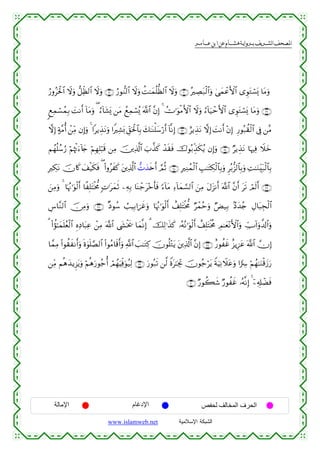 المصحف الشريف برواية هشام عن ابن عامر
وَمَا يَسْتَوِى ٱلْأَعْمَىٰ وَٱلْبَصِيرُ ۝ وَلَا ٱلظُّلُمَٰتُ وَلَا ٱلنُّورُ ۝ وَلَا ٱلظِّلُّ وَلَا ٱلْحَرُورُ
۝ وَمَا يَسْتَوِى ٱلْأَحْيَآءُ وَلَا ٱلْأَمْوَٰتُ ۚ إِنَّ ٱللَّهَ يُسْمِعُ مَن يَشَآءُ ۖ وَمَآ أَنتَ بِمُسْمِعٍ
مَّن فِى ٱلْقُبُورِ ۝ إِنْ أَنتَ إِلَّا نَذِيرٌ ۝ إِنَّآ أَرْسَلْنَٰكَ بِٱلْحَقِّ بَشِيرًا وَنَذِيرًا ۚ وَإِن مِّنْ أُمَّةٍ إِلَّا
خَلَا فِيهَا نَذِيرٌ ۝ وَإِن يُكَذِّبُوكَ فَقَدْ كَذَّبَ ٱلَّذِينَ مِن قَبْلِهِمْ جَآءَتْهُمْ رُسُلُهُم
بِٱلْبَيِّنَٰتِ وَبِٱلزُّبُرِ وَبِٱلْكِتَٰبِ ٱلْمُنِيرِ ۝ ثُمَّ أَخَذتُّ ٱلَّذِينَ كَفَرُوا۟ ۖ فَكَيْفَ كَانَ نَكِيرِ
۝ أَلَمْ تَرَ أَنَّ ٱللَّهَ أَنزَلَ مِنَ ٱلسَّمَآءِ مَآءً فَأَخْرَجْنَا بِهِۦ ثَمَرَٰتٍ مُّخْتَلِفًا أَلْوَٰنُهَا ۚ وَمِنَ
ٱلْجِبَالِ جُدَدٌۢ بِيضٌ وَحُمْرٌ مُّخْتَلِفٌ أَلْوَٰنُهَا وَغَرَابِيبُ سُودٌ ۝ وَمِنَ ٱلنَّاسِ
وَٱلدَّوَآبِّ وَٱلْأَنْعَٰمِ مُخْتَلِفٌ أَلْوَٰنُهُۥ كَذَٰلِكَ ۗ إِنَّمَا يَخْشَى ٱللَّهَ مِنْ عِبَادِهِ ٱلْعُلَمَٰٓؤُا۟ ۗ
إِنَّ ٱللَّهَ عَزِيزٌ غَفُورٌ ۝ إِنَّ ٱلَّذِينَ يَتْلُونَ كِتَٰبَ ٱللَّهِ وَأَقَامُوا۟ ٱلصَّلَوٰةَ وَأَنفَقُوا۟ مِمَّا
رَزَقْنَٰهُمْ سِرًّا وَعَلَانِيَةً يَرْجُونَ تِجَٰرَةً لَّن تَبُورَ ۝ لِيُوَفِّيَهُمْ أُجُورَهُمْ وَيَزِيدَهُم مِّن
فَضْلِهِۦٓ ۚ إِنَّهُۥ غَفُورٌ شَكُورٌ ۝
الحرف المخالف لحفص الإدغام الإمالة
الشبكة الإسلامية www.islamweb.net